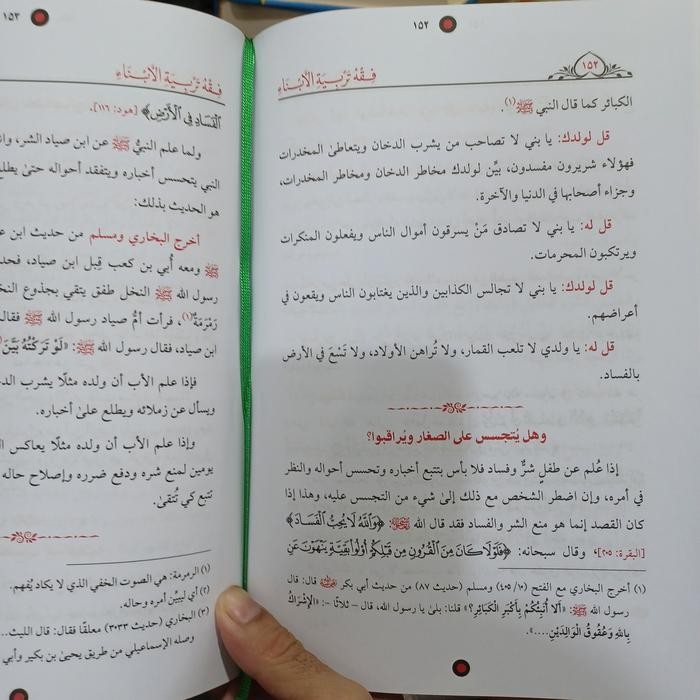 ١٥٢
١٥٢
فِقْهُ تَرْبِيَةِ الْأَبْنَاءِ
الكبائر كما قال النبي ﷺ(١).
قل لولدك: يا بني لا تصاحب من يشرب الدخان ويتعاطى المخدرات
فهؤلاء شريرون مفسدون، بيِّن لولدك مخاطر الدخان ومخاطر المخدرات،
وجزاء أصحابها في الدنيا والآخرة.
قل له: يا بني لا تصادق مَنْ يسرقون أموال الناس ويفعلون المنكرات
ويرتكبون المحرمات.
قل لولدك: يا بني لا تجالس الكذابين والذين يغتابون الناس ويقعون في
أعراضهم.
قل له: يا ولدي لا تلعب القمار، ولا تُراهن الأولاد، ولا تَسْعَ في الأرض
بالفساد.
وهل يُتجسس على الصغار ويُراقبوا؟
إذا عُلم عن طفلٍ شرٌّ وفساد فلا بأس بتتبع أخباره وتحسس أحواله والنظر
في أمره، وإن اضطر الشخص مع ذلك إلى شيء من التجسس عليه، وهذا إذا
كان القصد إنما هو منع الشر والفساد فقد قال الله ﷻ: ﴿وَاللَّهُ لَا يُحِبُّ الْفَسَادَ﴾
[البقرة: ٢٠٥]، وقال سبحانه: ﴿فَلَوْلَا كَانَ مِنَ الْقُرُونِ مِن قَبْلِكُمْ أُوْلُوا بَقِيَّةٍ يَنْهَوْنَ عَنِ
(١) أخرج البخاري مع الفتح (٤٠٥/١٠) ومسلم (حديث ٨٧) من حديث أبي بكر رضي الله عنه قال: قال
رسول الله ﷺ: «أَلَا أُنَبِّئُكُمْ بِأَكْبَرِ الْكَبَائِرِ؟» قلنا: بلىٰ يا رسول الله، قال – ثلاثًا –: «الْإِشْرَاكُ
بِاللهِ وَعُقُوقُ الْوَالِدَيْنِ....».
١٥٣
فِقْهُ تَرْبِيَةِ الْأَبْنَاءِ
الْفَسَادِ فِي الْأَرْضِ﴾ [هود: ١١٦].
ولما علم النبيُّ ﷺ عن ابن صياد الشر، وا
النبي يتحسس أخباره ويتفقد أحواله حتىٰ يطل
هو الحديث بذلك:
أخرج البخاري ومسلم من حديث ابن ع
ﷺ ومعه أُبي بن كعب قِبل ابن صياد، فحد
رسول الله ﷺ النخل طفق يتقي بجذوع النخ
رَمْرَمَةٌ(١)، فرأت أمُّ صياد رسول الله ﷺ فقال
ابن صياد، فقال رسول الله ﷺ: «لَوْ تَرَكَتْهُ بَيَّنَ
فإذا علم الأب أن ولده مثلًا يشرب الد
ويسأل عن زملائه ويطلع علىٰ أخباره.
وإذا علم الأب أن ولده مثلًا يعاكس ال
يومين لمنع شره ودفع ضرره وإصلاح حاله
تتبع كي تُتقىٰ.
(١) الرمرمة: هي الصوت الخفي الذي لا يكاد يُفهم.
(٢) أي ليبيِّن أمره وحاله.
(٣) البخاري (حديث ٣٠٣٣) معلقًا فقال: قال الليث...
وصله الإسماعيلي من طريق يحيىٰ بن بكير وأبي